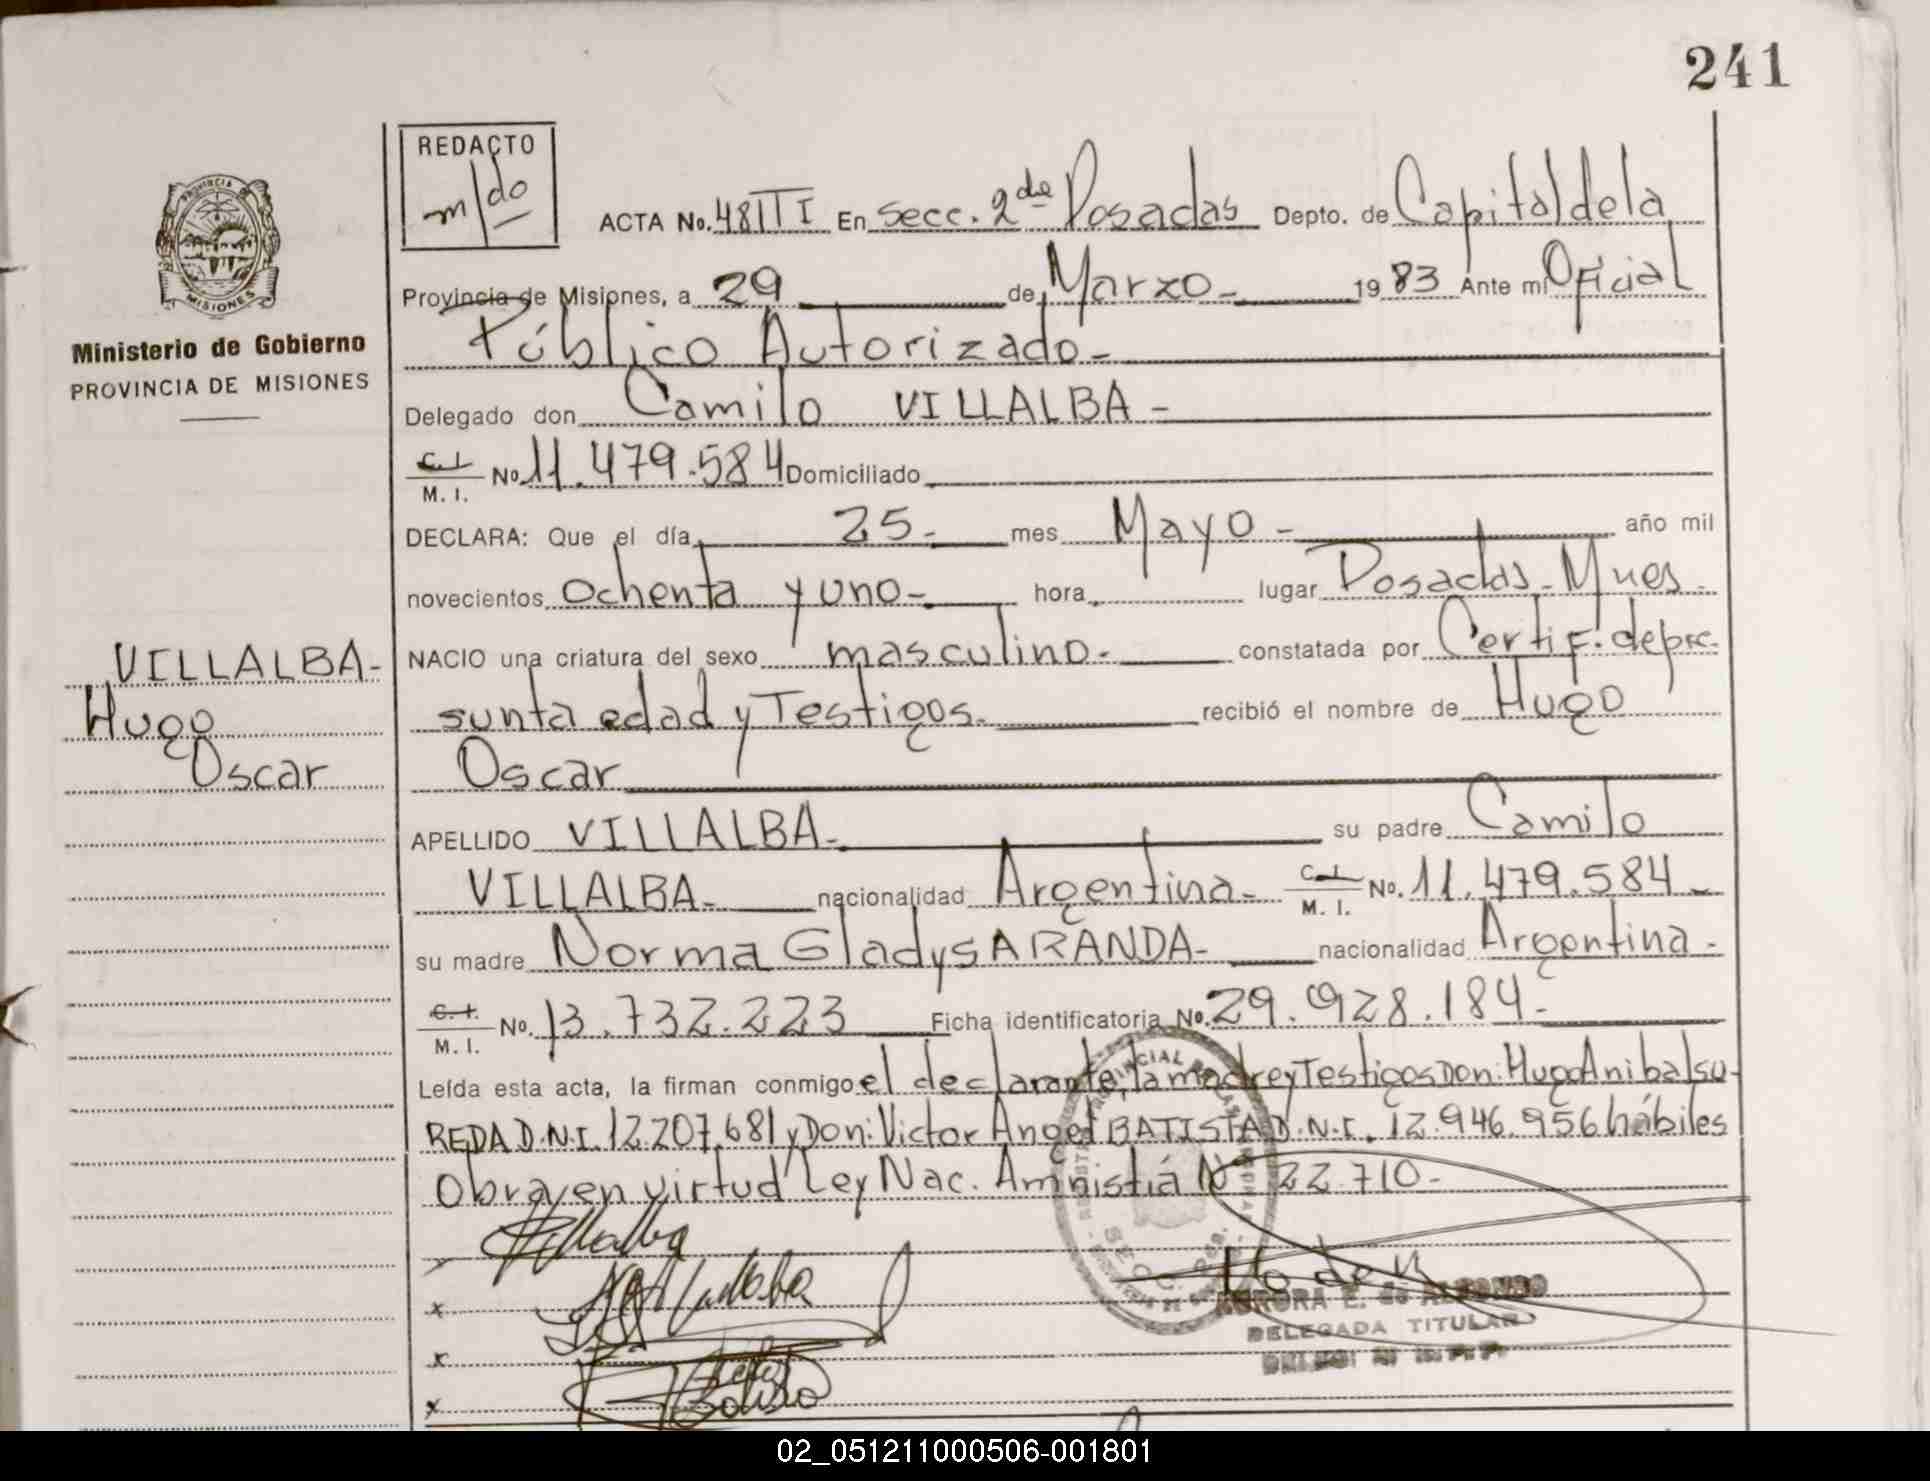 241
REDACTO
m/do
ACTA No. 481TI En Secc. 2da Posadas Depto. de Capital de la
Provincia de Misiones, a 29 de Marzo - 1983 Ante mi Oficial
Público Autorizado -
Ministerio de Gobierno
PROVINCIA DE MISIONES
Delegado don Camilo VILLALBA -
C.I. M. I. No 11.479.584 Domiciliado
DECLARA: Que el día 25 - mes Mayo - año mil
novecientos ochenta y uno - hora lugar Posadas - Mnes -
NACIO una criatura del sexo masculino - constatada por Certif. de pre-
sunta edad y Testigos - recibió el nombre de Hugo
Oscar
VILLALBA -
Hugo
Oscar
APELLIDO VILLALBA - su padre Camilo
VILLALBA - nacionalidad Argentina - C.I. M. I. No. 11.479.584 -
su madre Norma Gladys ARANDA - nacionalidad Argentina -
C.I. M. I. No. 13.732.223 Ficha identificatoria No. 29.928.184 -
Leída esta acta, la firman conmigo el declarante, la madre y Testigos Don: Hugo Anibal SU-
REDA D.N.I. 12.207.681 y Don: Victor Angel BATISTA D.N.I. 12.946.956 hábiles
Obra en virtud Ley Nac. Amnistiá Nº 22.710 -
Villalba
AURORA E. de ALFONSO
DELEGADA TITULAR
02_051211000506-001801